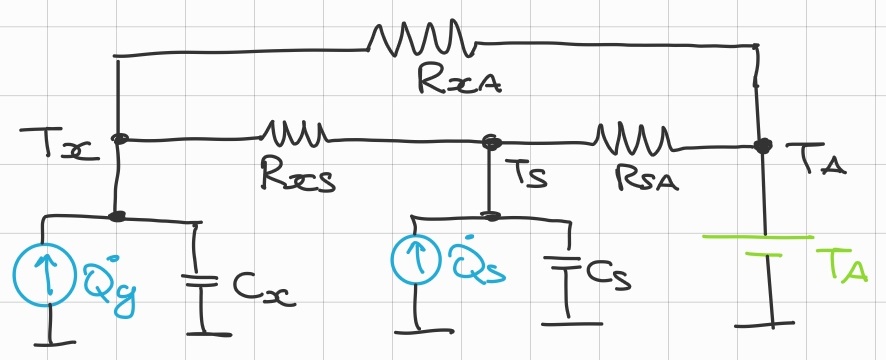 RxA
Tx
Rxs
Ts
RsA
TA
Q̇g
Cx
Q̇s
Cs
TA